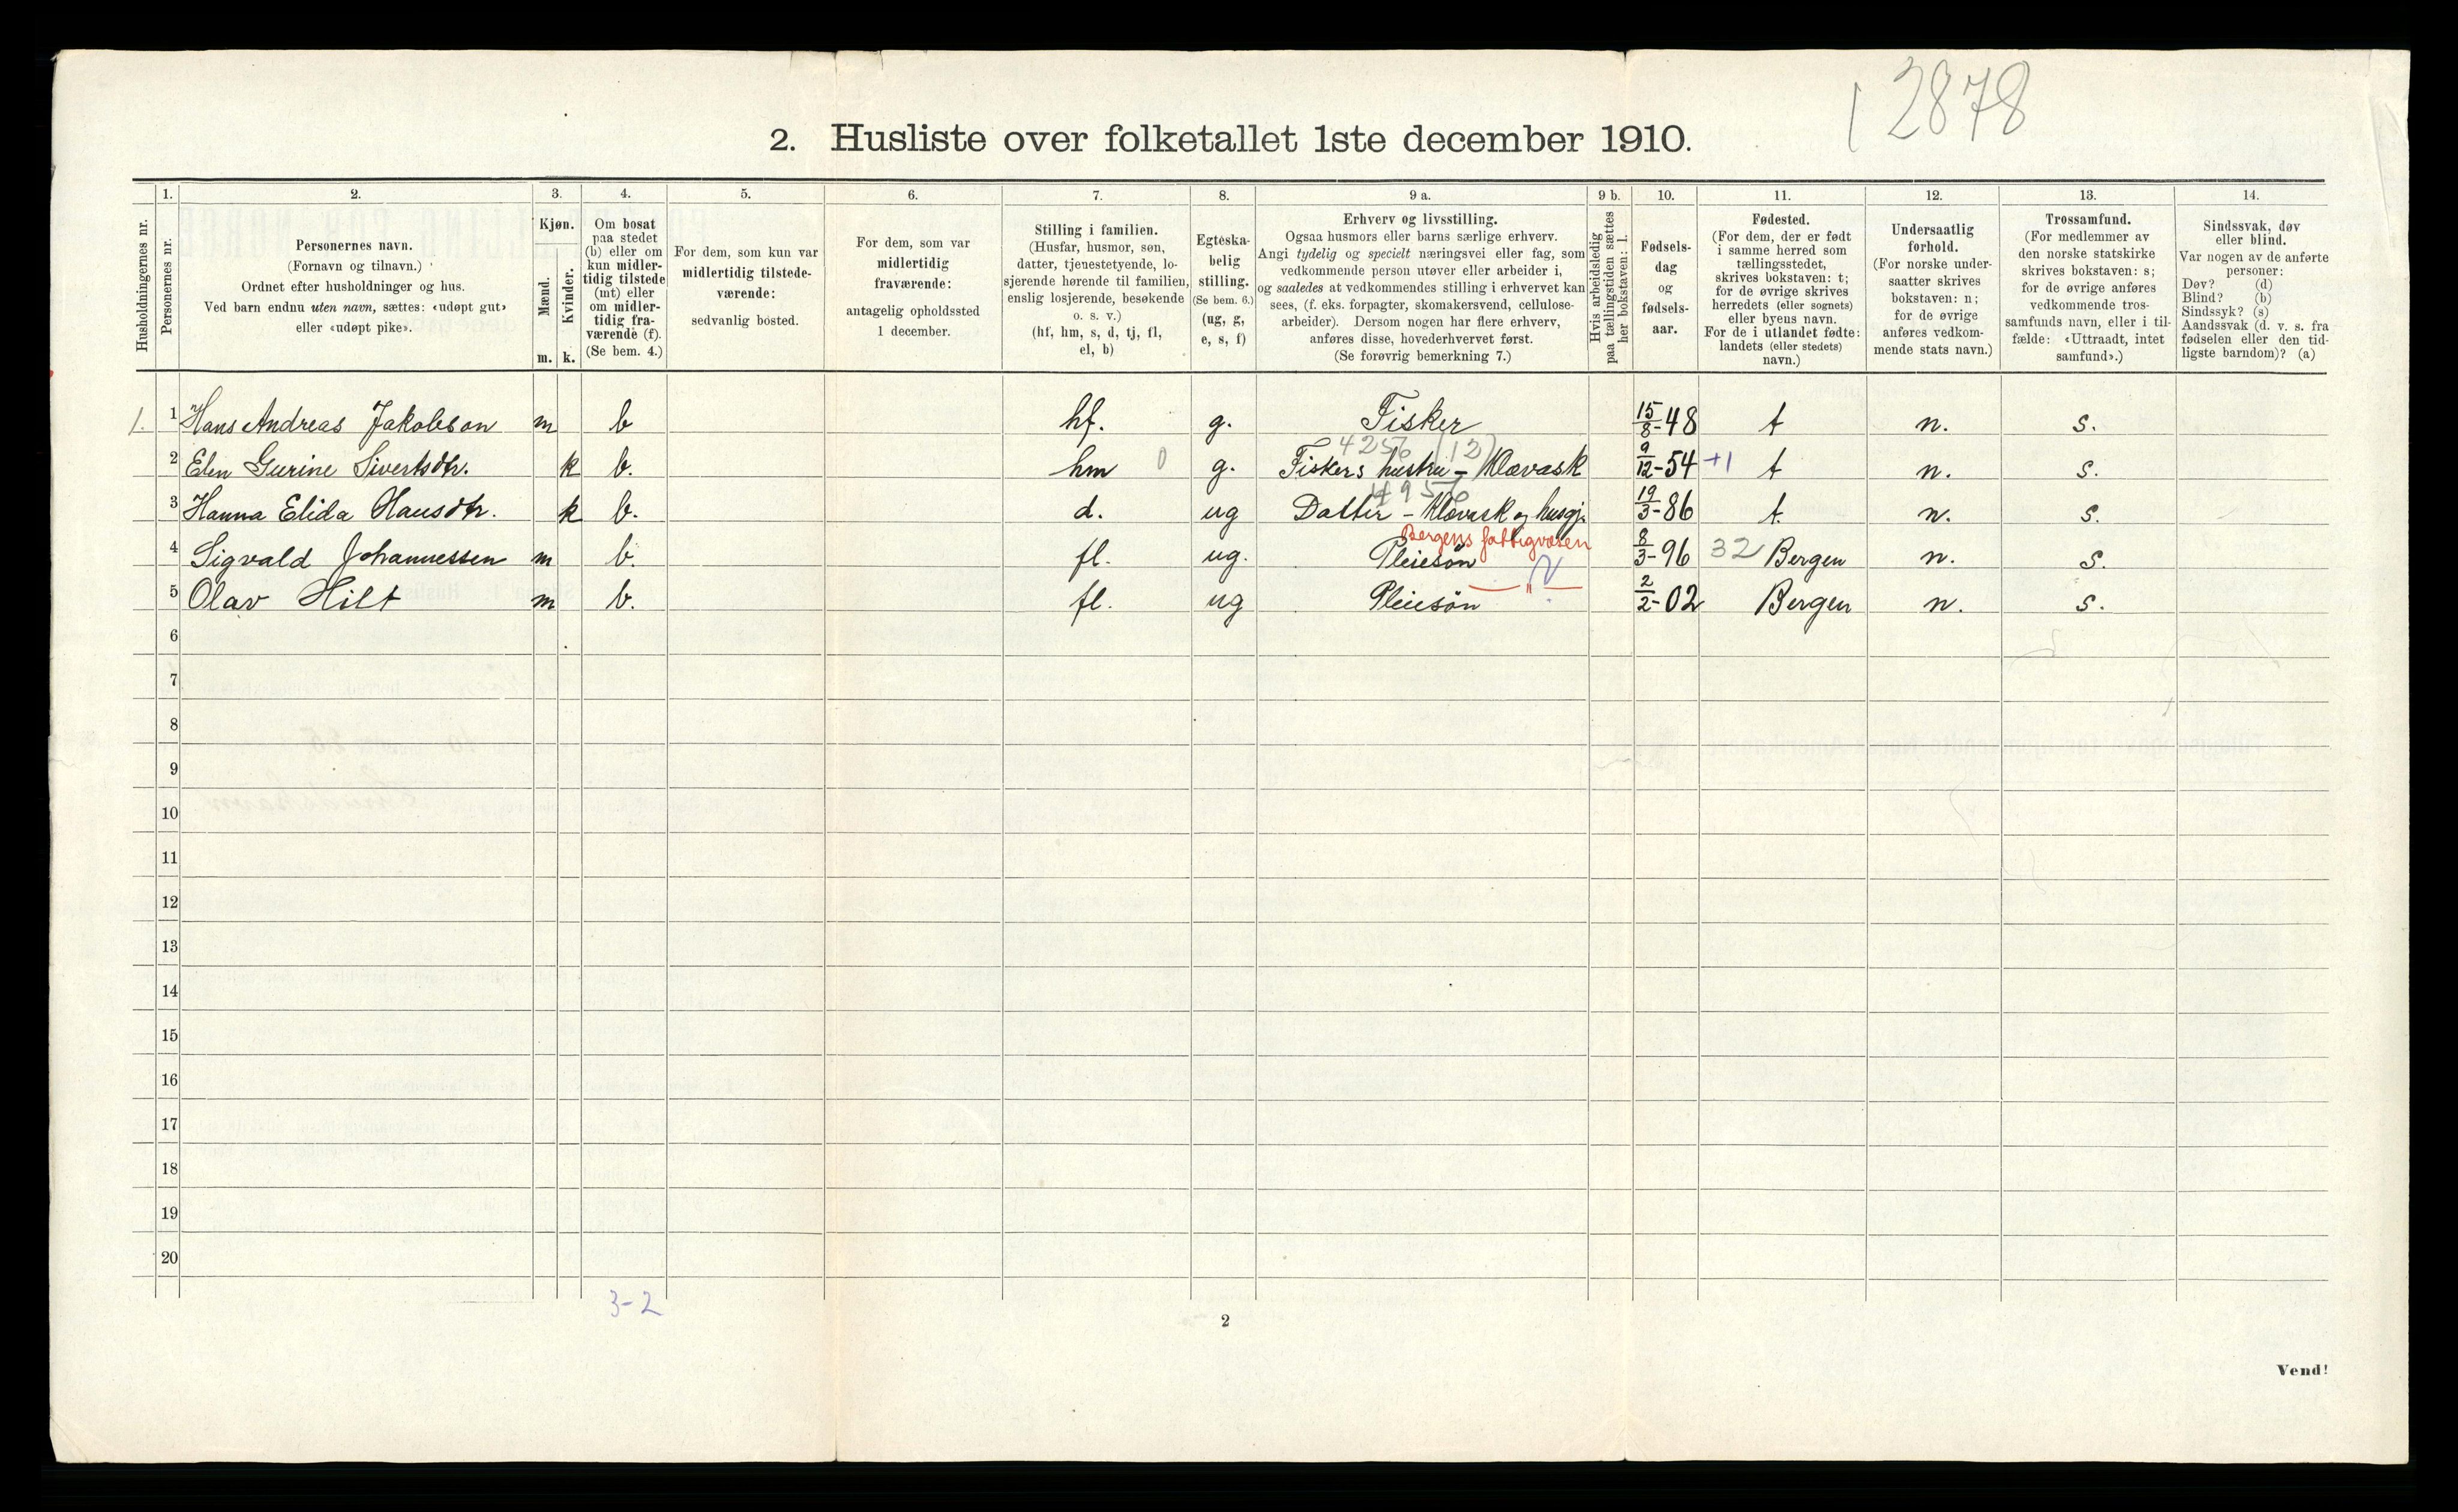 12878
2. Husliste over folketallet 1ste december 1910.
Husholdningernes nr.
1.
Personernes nr.
2.
Personernes navn.
(Fornavn og tilnavn.)
Ordnet efter husholdninger og hus.
Ved barn endnu uten navn, sættes: «udøpt gut»
eller «udøpt pike».
3.
Kjøn.
Mænd.
Kvinder.
m. k.
4.
Om bosat
paa stedet
(b) eller om
kun midler-
tidig tilstede
(mt) eller
om midler-
tidig fra-
værende (f).
(Se bem. 4.)
5.
For dem, som kun var
midlertidig tilstede-
værende:
sedvanlig bosted.
6.
For dem, som var
midlertidig
fraværende:
antagelig opholdssted
1 december.
7.
Stilling i familien.
(Husfar, husmor, søn,
datter, tjenestetyende, lo-
sjerende hørende til familien,
enslig losjerende, besøkende
o. s. v.)
(hf, hm, s, d, tj, fl,
el, b)
8.
Egteska-
belig
stilling.
(Se bem. 6.)
(ug, g,
e, s, f)
9 a.
Erhverv og livsstilling.
Ogsaa husmors eller barns særlige erhverv.
Angi tydelig og specielt næringsvei eller fag, som
vedkommende person utøver eller arbeider i,
og saaledes at vedkommendes stilling i erhvervet kan
sees, (f. eks. forpagter, skomakersvend, cellulose-
arbeider). Dersom nogen har flere erhverv,
anføres disse, hovederhvervet først.
(Se forøvrig bemerkning 7.)
9 b.
Hvis arbeidsledig
paa tællingstiden sættes
her bokstaven: l.
10.
Fødsels-
dag
og
fødsels-
aar.
11.
Fødested.
(For dem, der er født
i samme herred som
tællingsstedet,
skrives bokstaven: t;
for de øvrige skrives
herredets (eller sognets)
eller byens navn.
For de i utlandet fødte:
landets (eller stedets)
navn.)
12.
Undersaatlig
forhold.
(For norske under-
saatter skrives
bokstaven: n;
for de øvrige
anføres vedkom-
mende stats navn.)
13.
Trossamfund.
(For medlemmer av
den norske statskirke
skrives bokstaven: s;
for de øvrige anføres
vedkommende tros-
samfunds navn, eller i til-
fælde: «Uttraadt, intet
samfund».)
14.
Sindssvak, døv
eller blind.
Var nogen av de anførte
personer:
Døv? (d)
Blind? (b)
Sindssyk? (s)
Aandssvak (d. v. s. fra
fødselen eller den tid-
ligste barndom)? (a)
1. 1 Hans Andreas Jakobson m b hf. g. Fisker 15/8-48 t n. s.
4256 (12)
2 Elen Gurine Sivertsdtr. k b. hm 0 g. Fiskers hustru - Kløvask 9/12-54 +1 t n. s.
4957
3 Hanna Elida Hansdtr. k b. d. ug Datter - Kløvask og husgj. 19/3-86 t. n. s.
Bergens fattigvæsen
4 Sigvald Johannessen m b. fl. ug. Pleiesøn 8/3-96 32 Bergen n. s.
— " —
5 Olav Hilt m b. fl. ug Pleiesøn 2/2-02 Bergen n. s.
6
7
8
9
10
11
12
13
14
15
16
17
18
19
20
3-2
2
Vend!